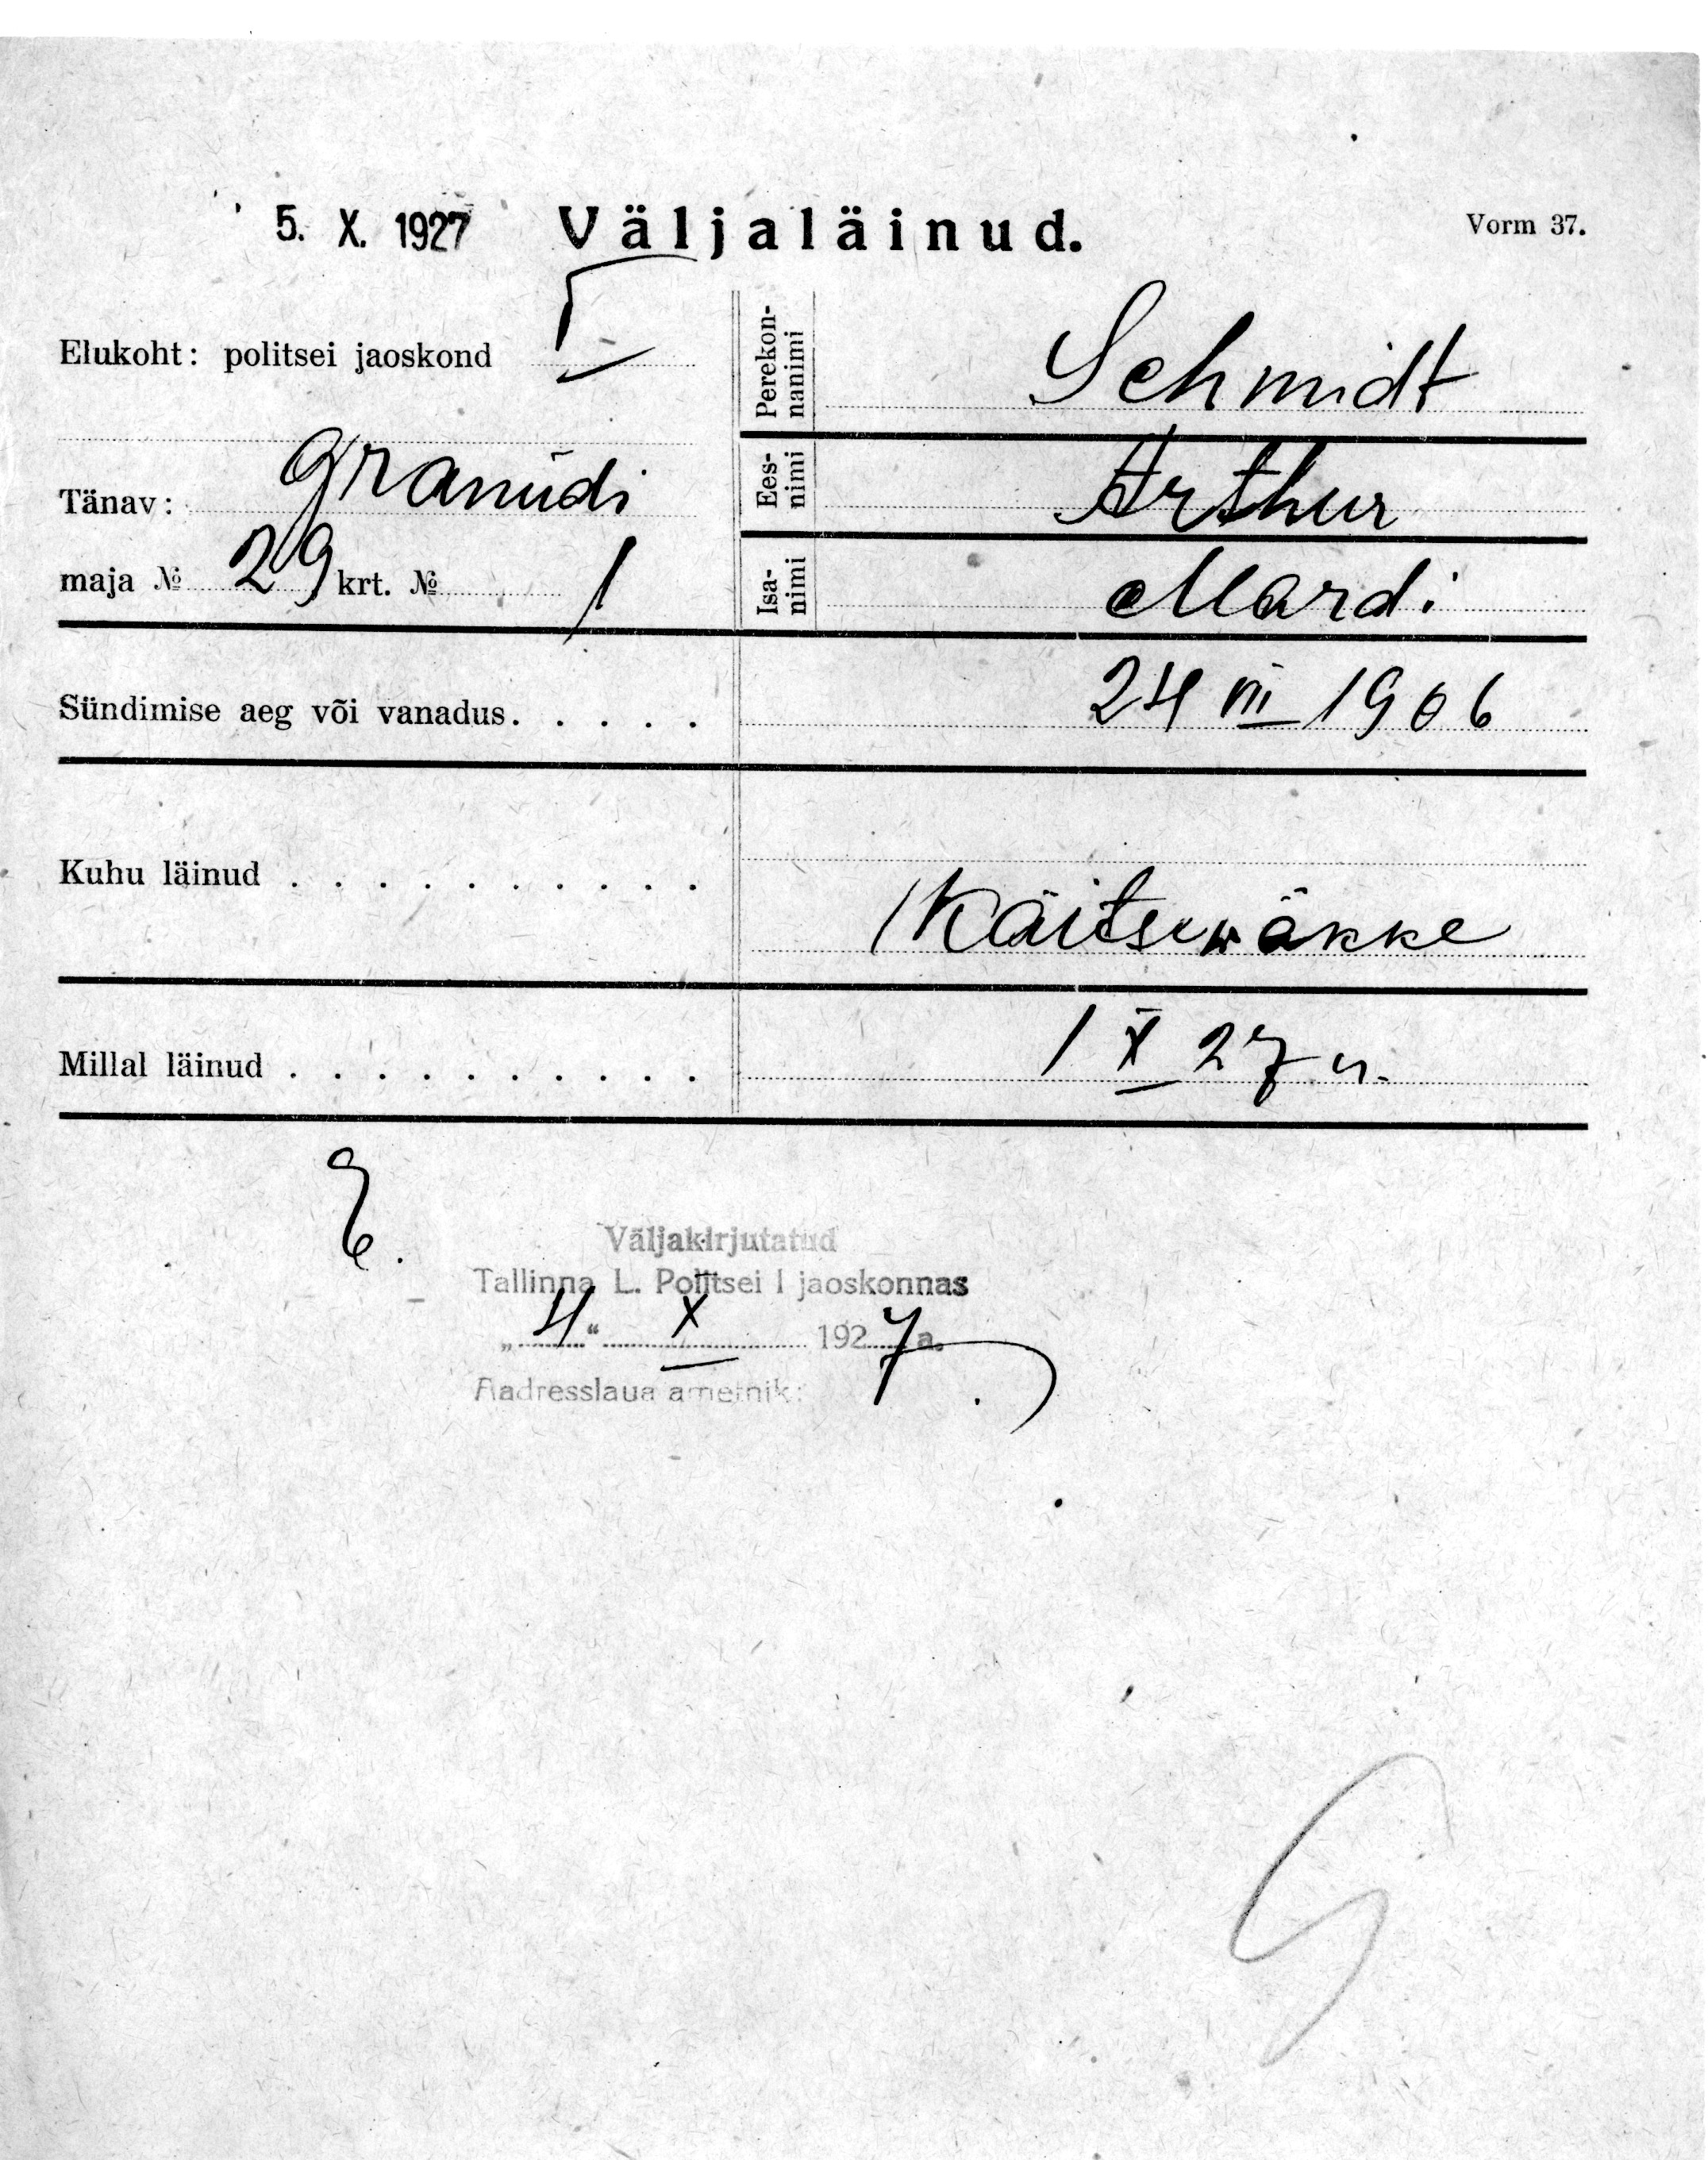 5. X. 1927 Väljaläinud. Vorm 37.
Elukoht: politsei jaoskond I
Tänav: Graniidi
maja № 29 krt. № 1
Perekonnanimi Schmidt
Eesnimi Arthur
Isanimi Mardi
Sündimise aeg või vanadus. . . . . 24 VII 1906
Kuhu läinud . . . . . . . . . . Käitsewäkke
Millal läinud . . . . . . . . . . 1 X 27 a.
Väljakirjutatud
Tallinna L. Politsei I jaoskonnas
„ 4 “ X 1927 a.
Aadresslaua ametnik: